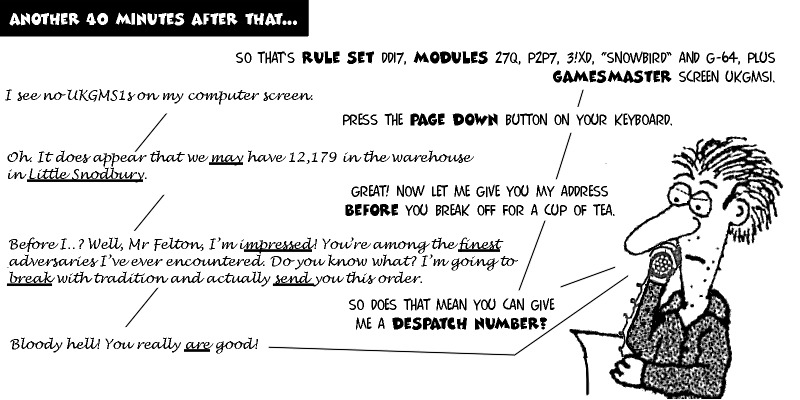 ANOTHER 40 MINUTES AFTER THAT...
SO THAT'S RULE SET DD17, MODULES 27Q, P2P7, 3!XD, "SNOWBIRD" AND G-64, PLUS
GAMESMASTER SCREEN UKGMS1.
I see no UKGMS1s on my computer screen.
PRESS THE PAGE DOWN BUTTON ON YOUR KEYBOARD.
Oh. It does appear that we may have 12,179 in the warehouse
in Little Snodbury.
GREAT! NOW LET ME GIVE YOU MY ADDRESS
BEFORE YOU BREAK OFF FOR A CUP OF TEA.
Before I..? Well, Mr Felton, I'm impressed! You're among the finest
adversaries I've ever encountered. Do you know what? I'm going to
break with tradition and actually send you this order.
SO DOES THAT MEAN YOU CAN GIVE
ME A DESPATCH NUMBER?
Bloody hell! You really are good!